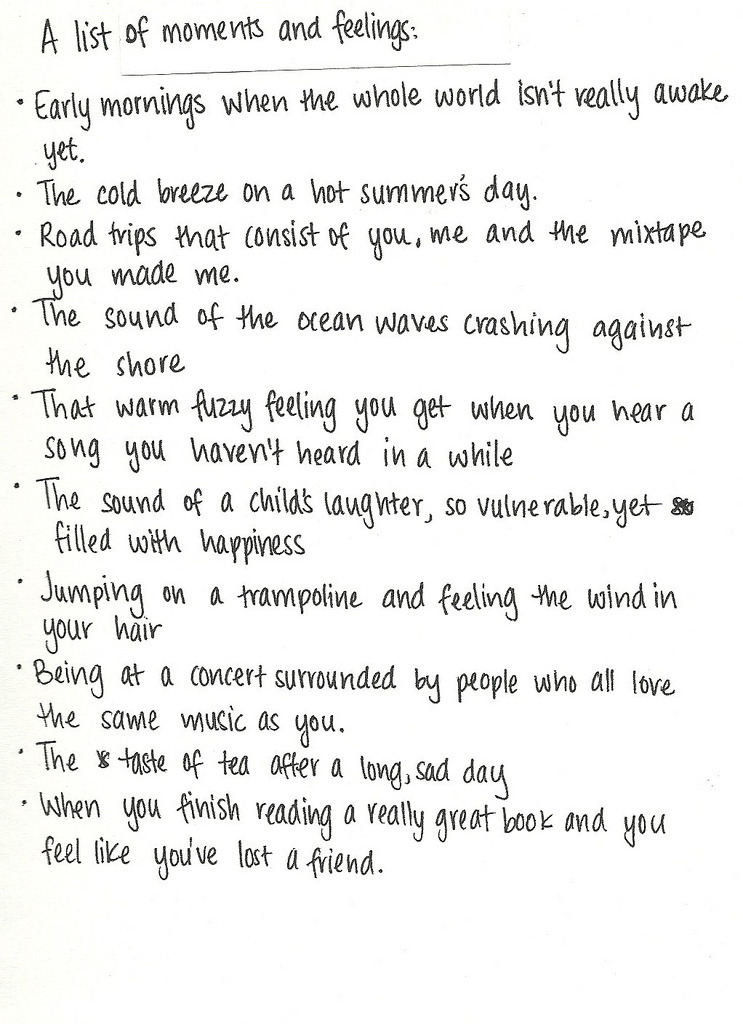 A list of moments and feelings:
• Early mornings when the whole world isn't really awake
yet.
• The cold breeze on a hot summer's day.
• Road trips that consist of you, me and the mixtape
you made me.
• The sound of the ocean waves crashing against
the shore
• That warm fuzzy feeling you get when you hear a
song you haven't heard in a while
• The sound of a child's laughter, so vulnerable, yet
filled with happiness
• Jumping on a trampoline and feeling the wind in
your hair
• Being at a concert surrounded by people who all love
the same music as you.
• The taste of tea after a long, sad day
• When you finish reading a really great book and you
feel like you've lost a friend.